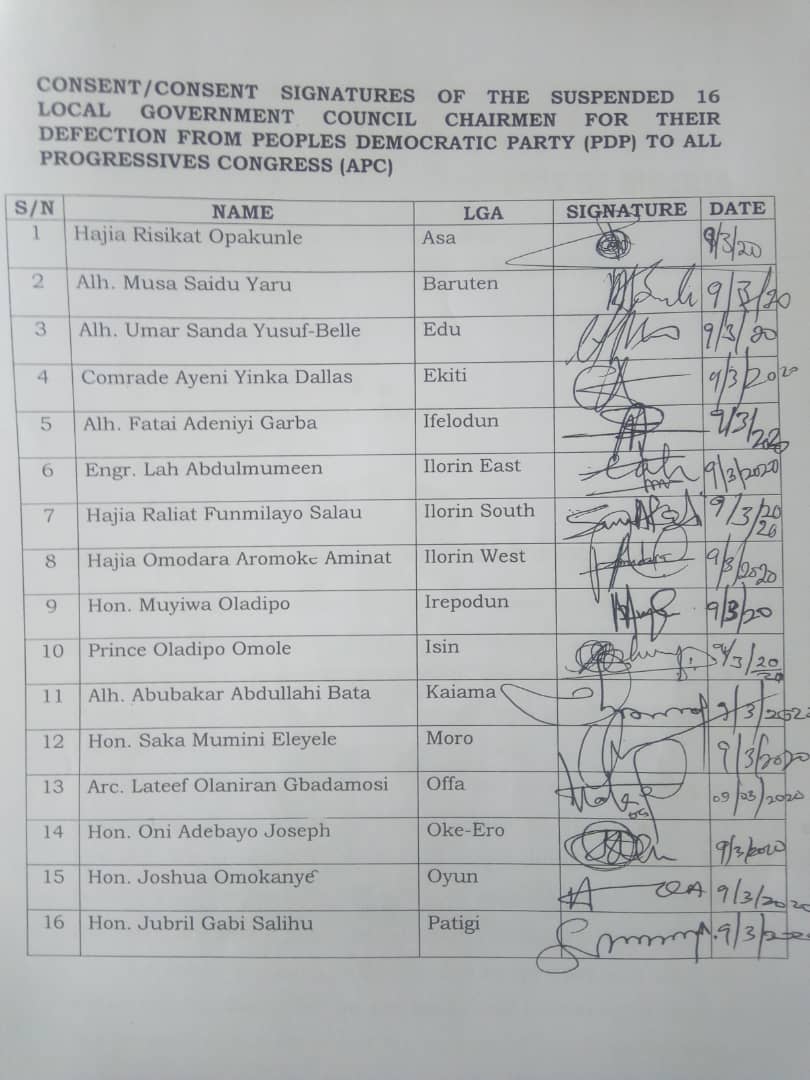 CONSENT/CONSENT SIGNATURES OF THE SUSPENDED 16
LOCAL GOVERNMENT COUNCIL CHAIRMEN FOR THEIR
DEFECTION FROM PEOPLES DEMOCRATIC PARTY (PDP) TO ALL
PROGRESSIVES CONGRESS (APC)
S/N NAME LGA SIGNATURE DATE
1 Hajia Risikat Opakunle Asa 9/3/20
2 Alh. Musa Saidu Yaru Baruten 9/3/20
3 Alh. Umar Sanda Yusuf-Belle Edu 9/3/20
4 Comrade Ayeni Yinka Dallas Ekiti 9/3/2020
5 Alh. Fatai Adeniyi Garba Ifelodun 9/3/2020
6 Engr. Lah Abdulmumeen Ilorin East 9/3/2020
7 Hajia Raliat Funmilayo Salau Ilorin South 9/3/2020
8 Hajia Omodara Aromoke Aminat Ilorin West 9/3/2020
9 Hon. Muyiwa Oladipo Irepodun 9/3/20
10 Prince Oladipo Omole Isin 9/3/2020
11 Alh. Abubakar Abdullahi Bata Kaiama 9/3/2020
12 Hon. Saka Mumini Eleyele Moro 9/3/2020
13 Arc. Lateef Olaniran Gbadamosi Offa 09/03/2020
14 Hon. Oni Adebayo Joseph Oke-Ero 9/3/2020
15 Hon. Joshua Omokanye Oyun 9/3/2020
16 Hon. Jubril Gabi Salihu Patigi 9/3/2020